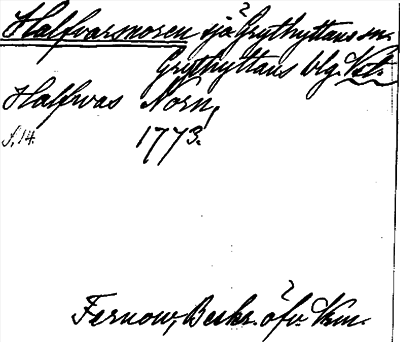 Halfvarsnoren sjö Grythyttans sn.
Grythyttans blg. Vstr.
Halfwas Norn,
S. 14. 1773.
Fernow, Beskr. öfv. Vrm.